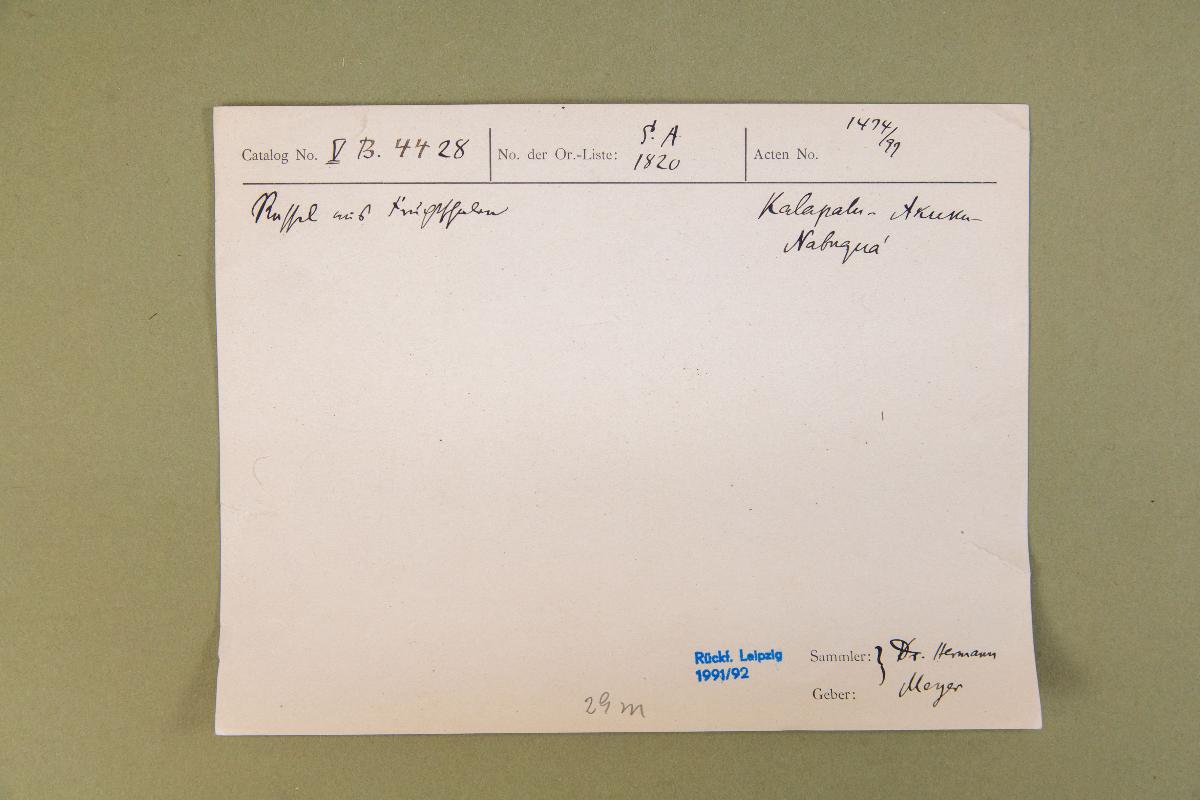 Catalog No. V B. 4428
No. der Or.-Liste: S. A
1820
Acten No. 1474/97
Rassel aus Fruchtschalen
Kalapalu- Akuku-
Nahuquá
Rückf. Leipzig
1991/92
Sammler: } Dr. Hermann
Geber: Meyer
29 m